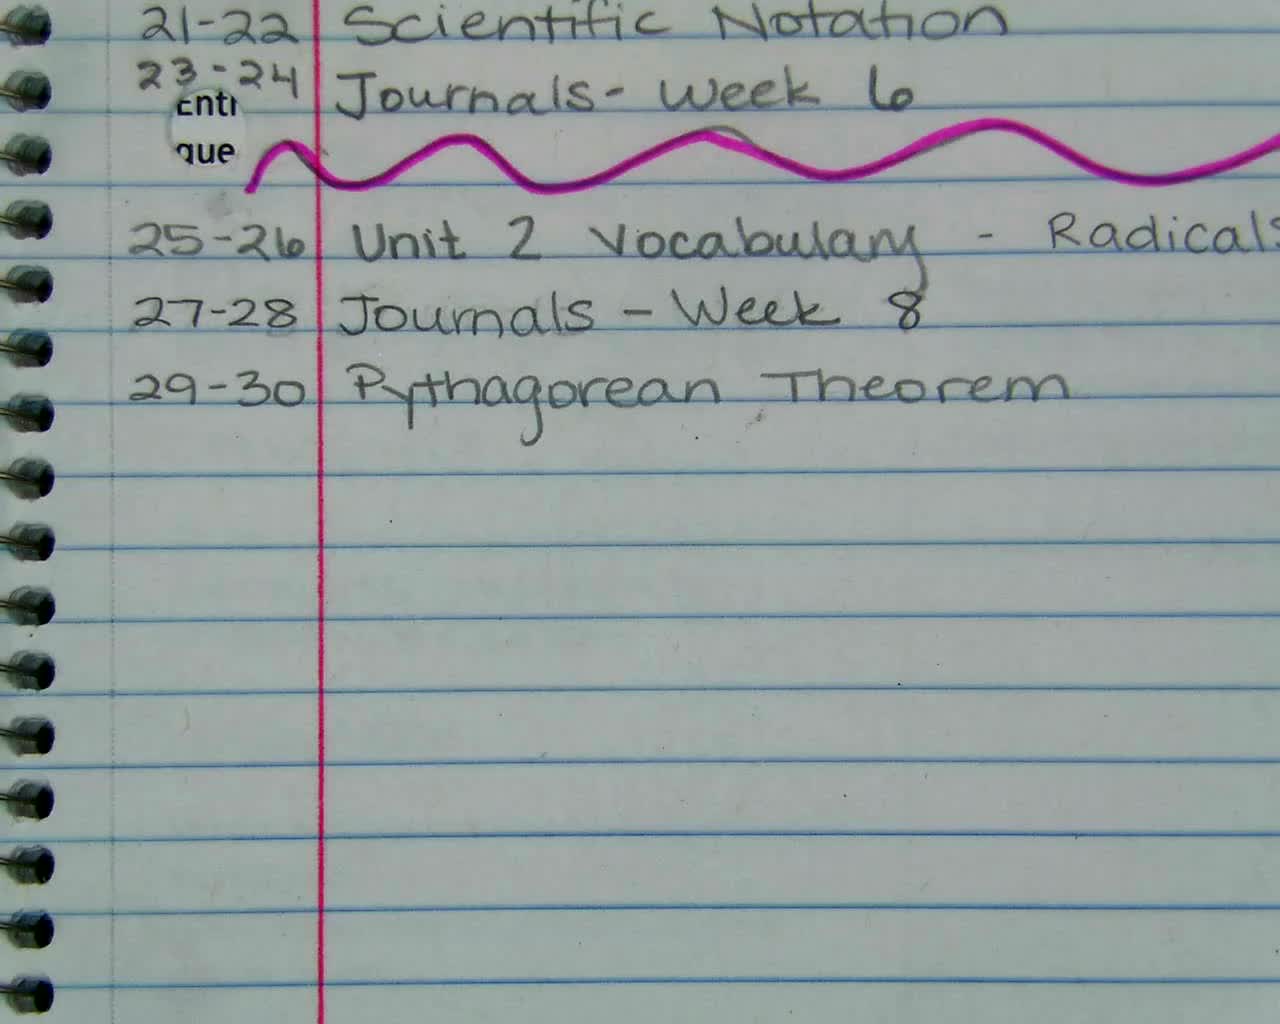 21-22 Scientific Notation
23-24 Journals- Week 6
25-26 Unit 2 Vocabulary - Radicals
27-28 Journals - Week 8
29-30 Pythagorean Theorem